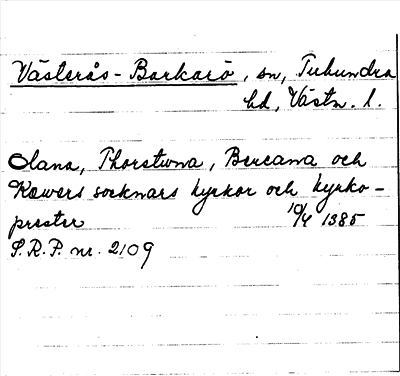 Västerås-Barkarö, sn, Tuhundra
hd, Västm. l.
Olana, Thorstuna, Bercarna och
Kæwers socknars kyrkor och kyrko-
prester 10/4 1385
S.R.P. nr. 2109